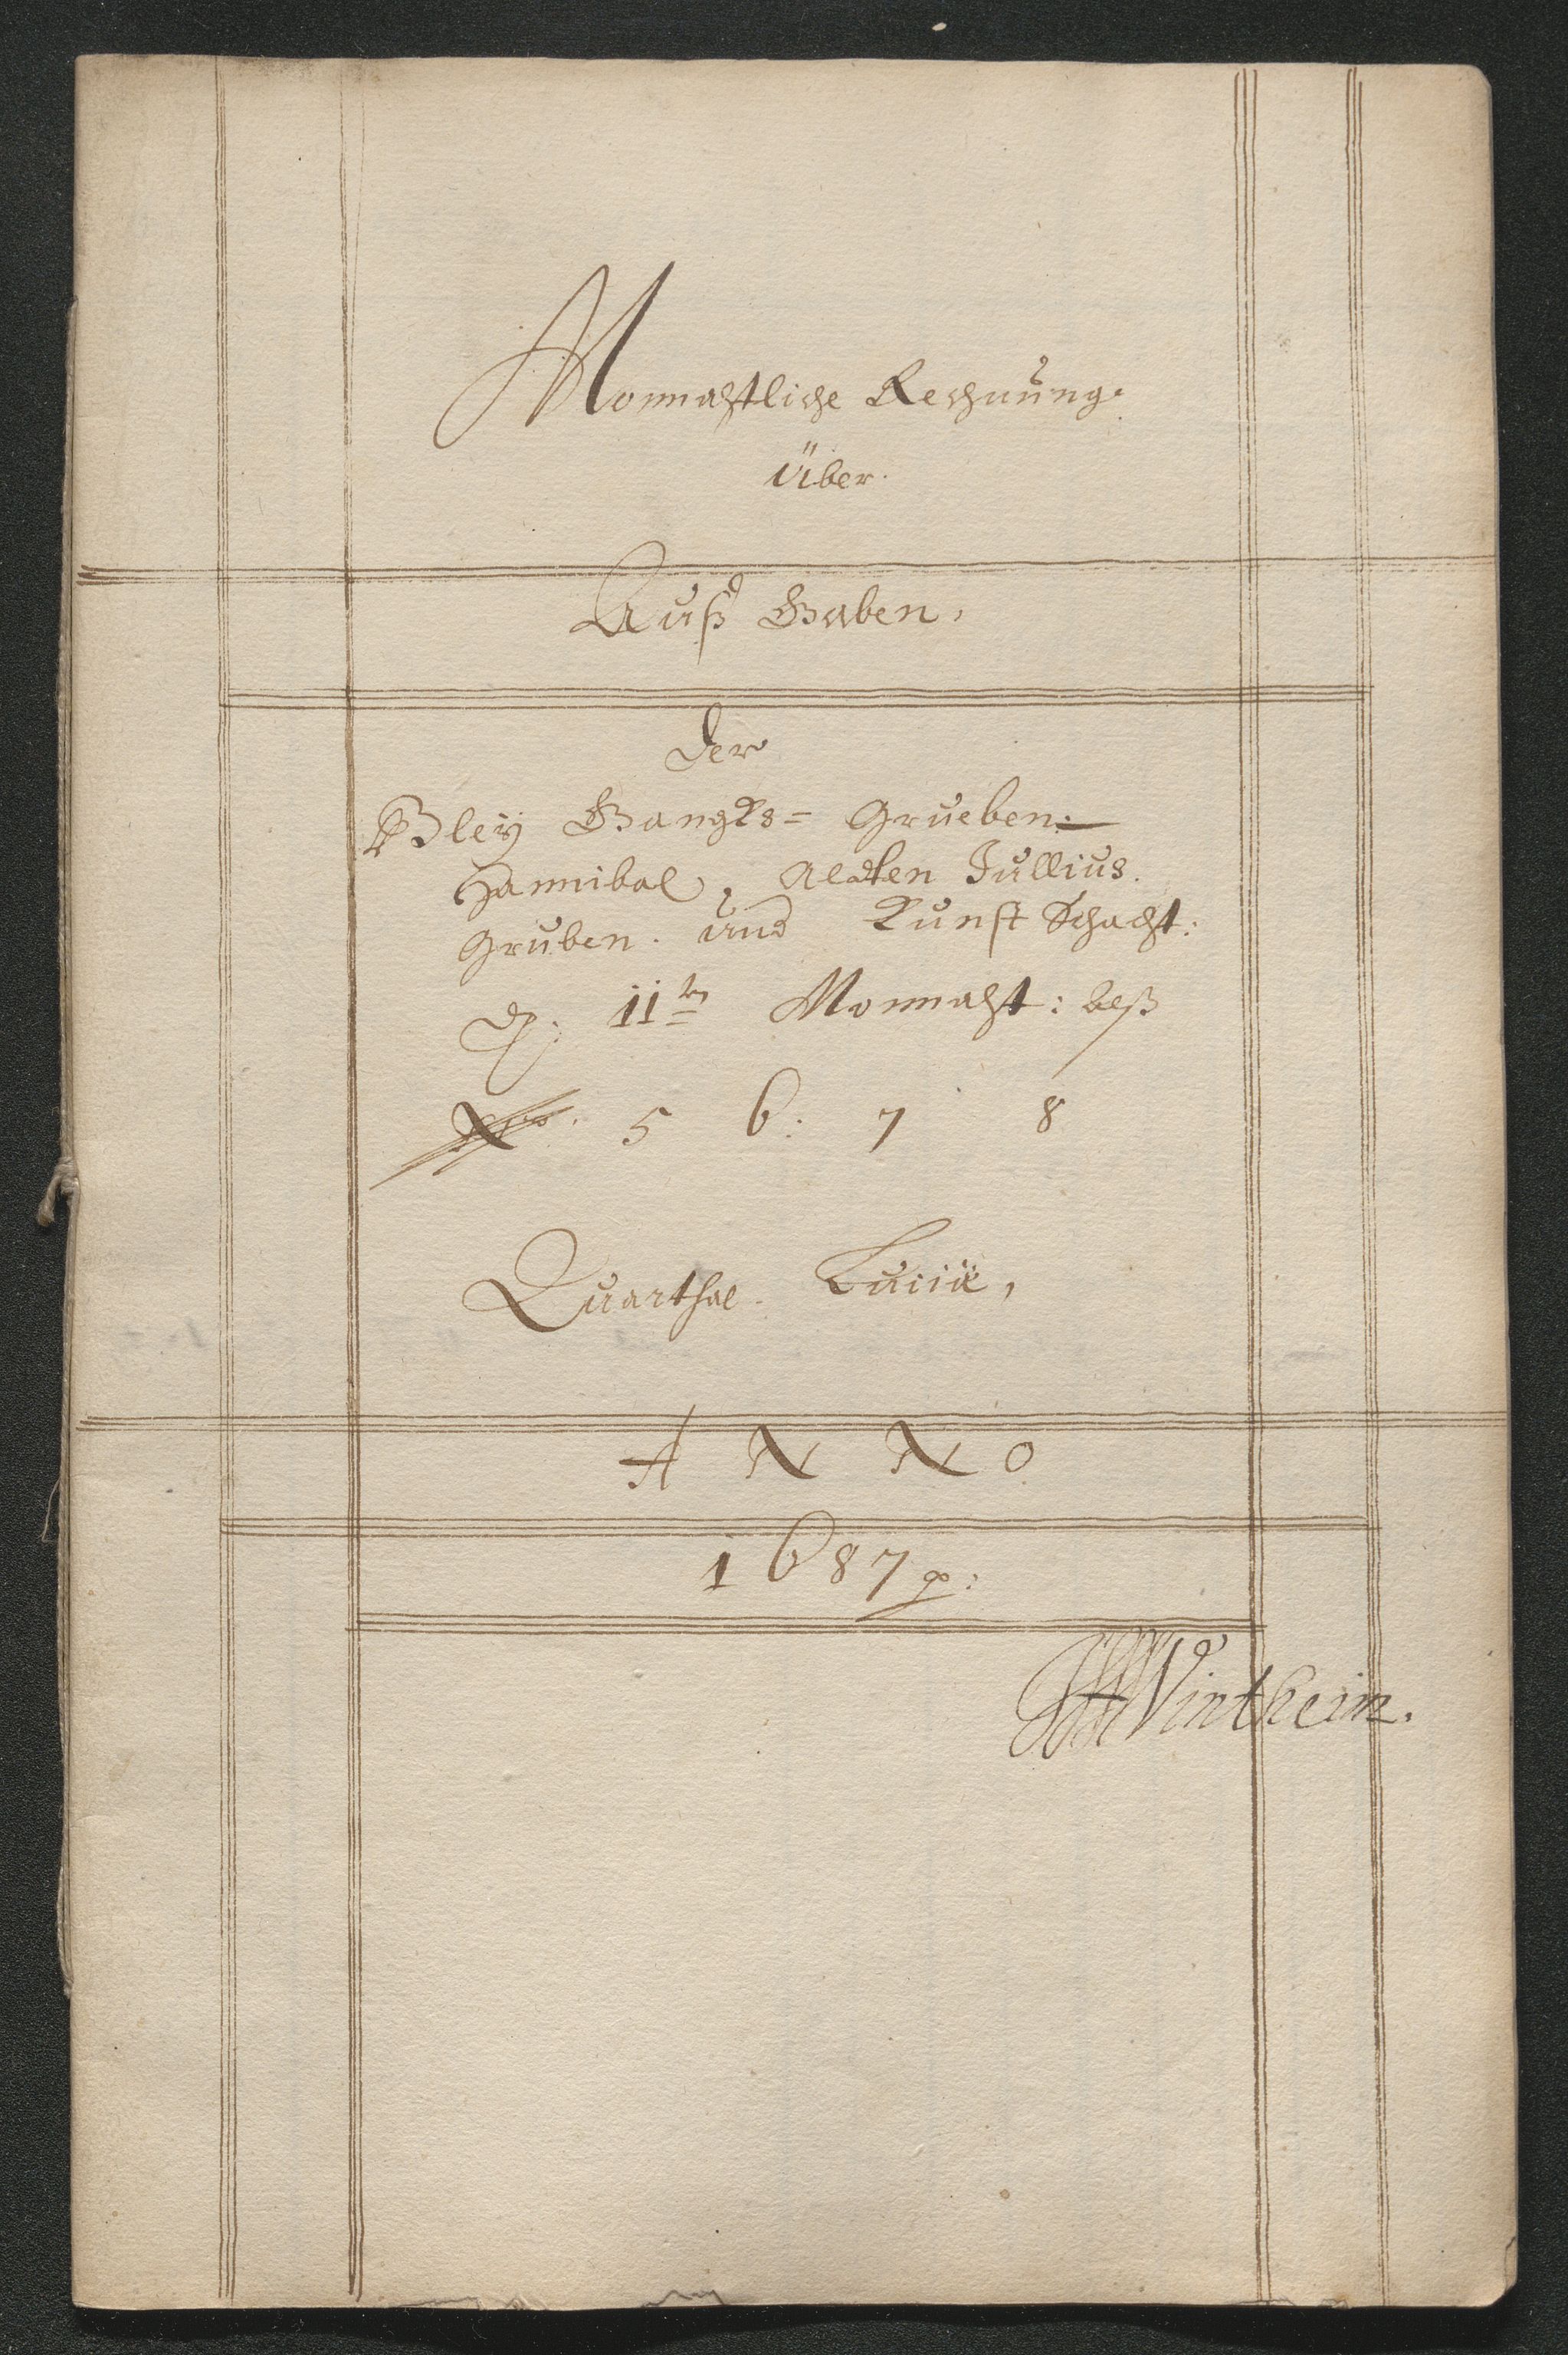 Monnahtliche Rechnung.
über.
Auß Gaben,
Der
Bleÿ Gangks= Grueben:
Hannibal, Aldten Jullius.
Gruben. und Kunst Schacht:
11ten Monnaht: deß
No. 5 6: 7 8
Quarthal. Luciæ,
ANNO
1687
Wintheim.